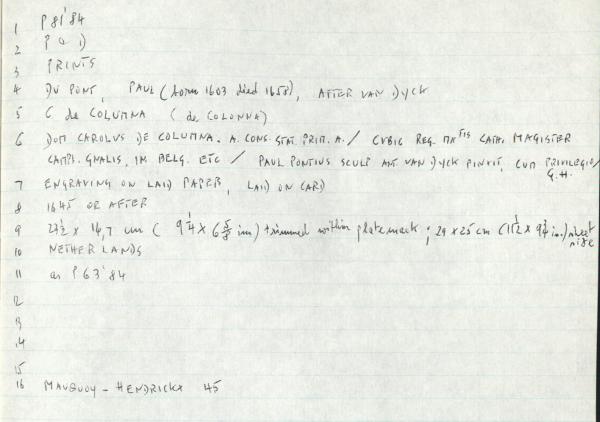 1 P 81'84
2 P a i)
3 PRINTS
4 DU PONT, PAUL (born 1603 died 1658), AFTER VAN DYCK
5 C de COLUMNA (de COLONNA)
6 DOM CAROLVS DE COLUMNA. A. CONS. STAT. PRIM. A. / CVBIC REG. MATIS CATH. MAGISTER
CAMPI. GNALIS, IM BELG. ETC / PAUL PONTIUS SCULP ANT. VAN DYCK PINXIT, CUM PRIVILEGIO/
G.H.
7 ENGRAVING ON LAID PAPER, LAID ON CARD
8 1645 OR AFTER
9 x 16,7 cm ( 9 1/4 x 6 5/8 in) trimmed within platemark; 29 x 25 cm (11 1/2 x in.) sheet
size
10 NETHERLANDS
11 as P 63'84
12
13
14
15
16 MAUQUOY - HENDRICKX 45